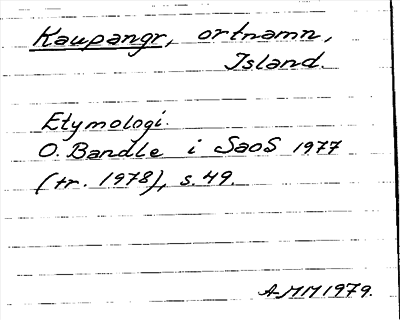 Kaupangr, ortnamn,
Island.
Etymologi.
O. Bandle i SaoS 1977
(tr. 1978), s. 49.
AMM1979.